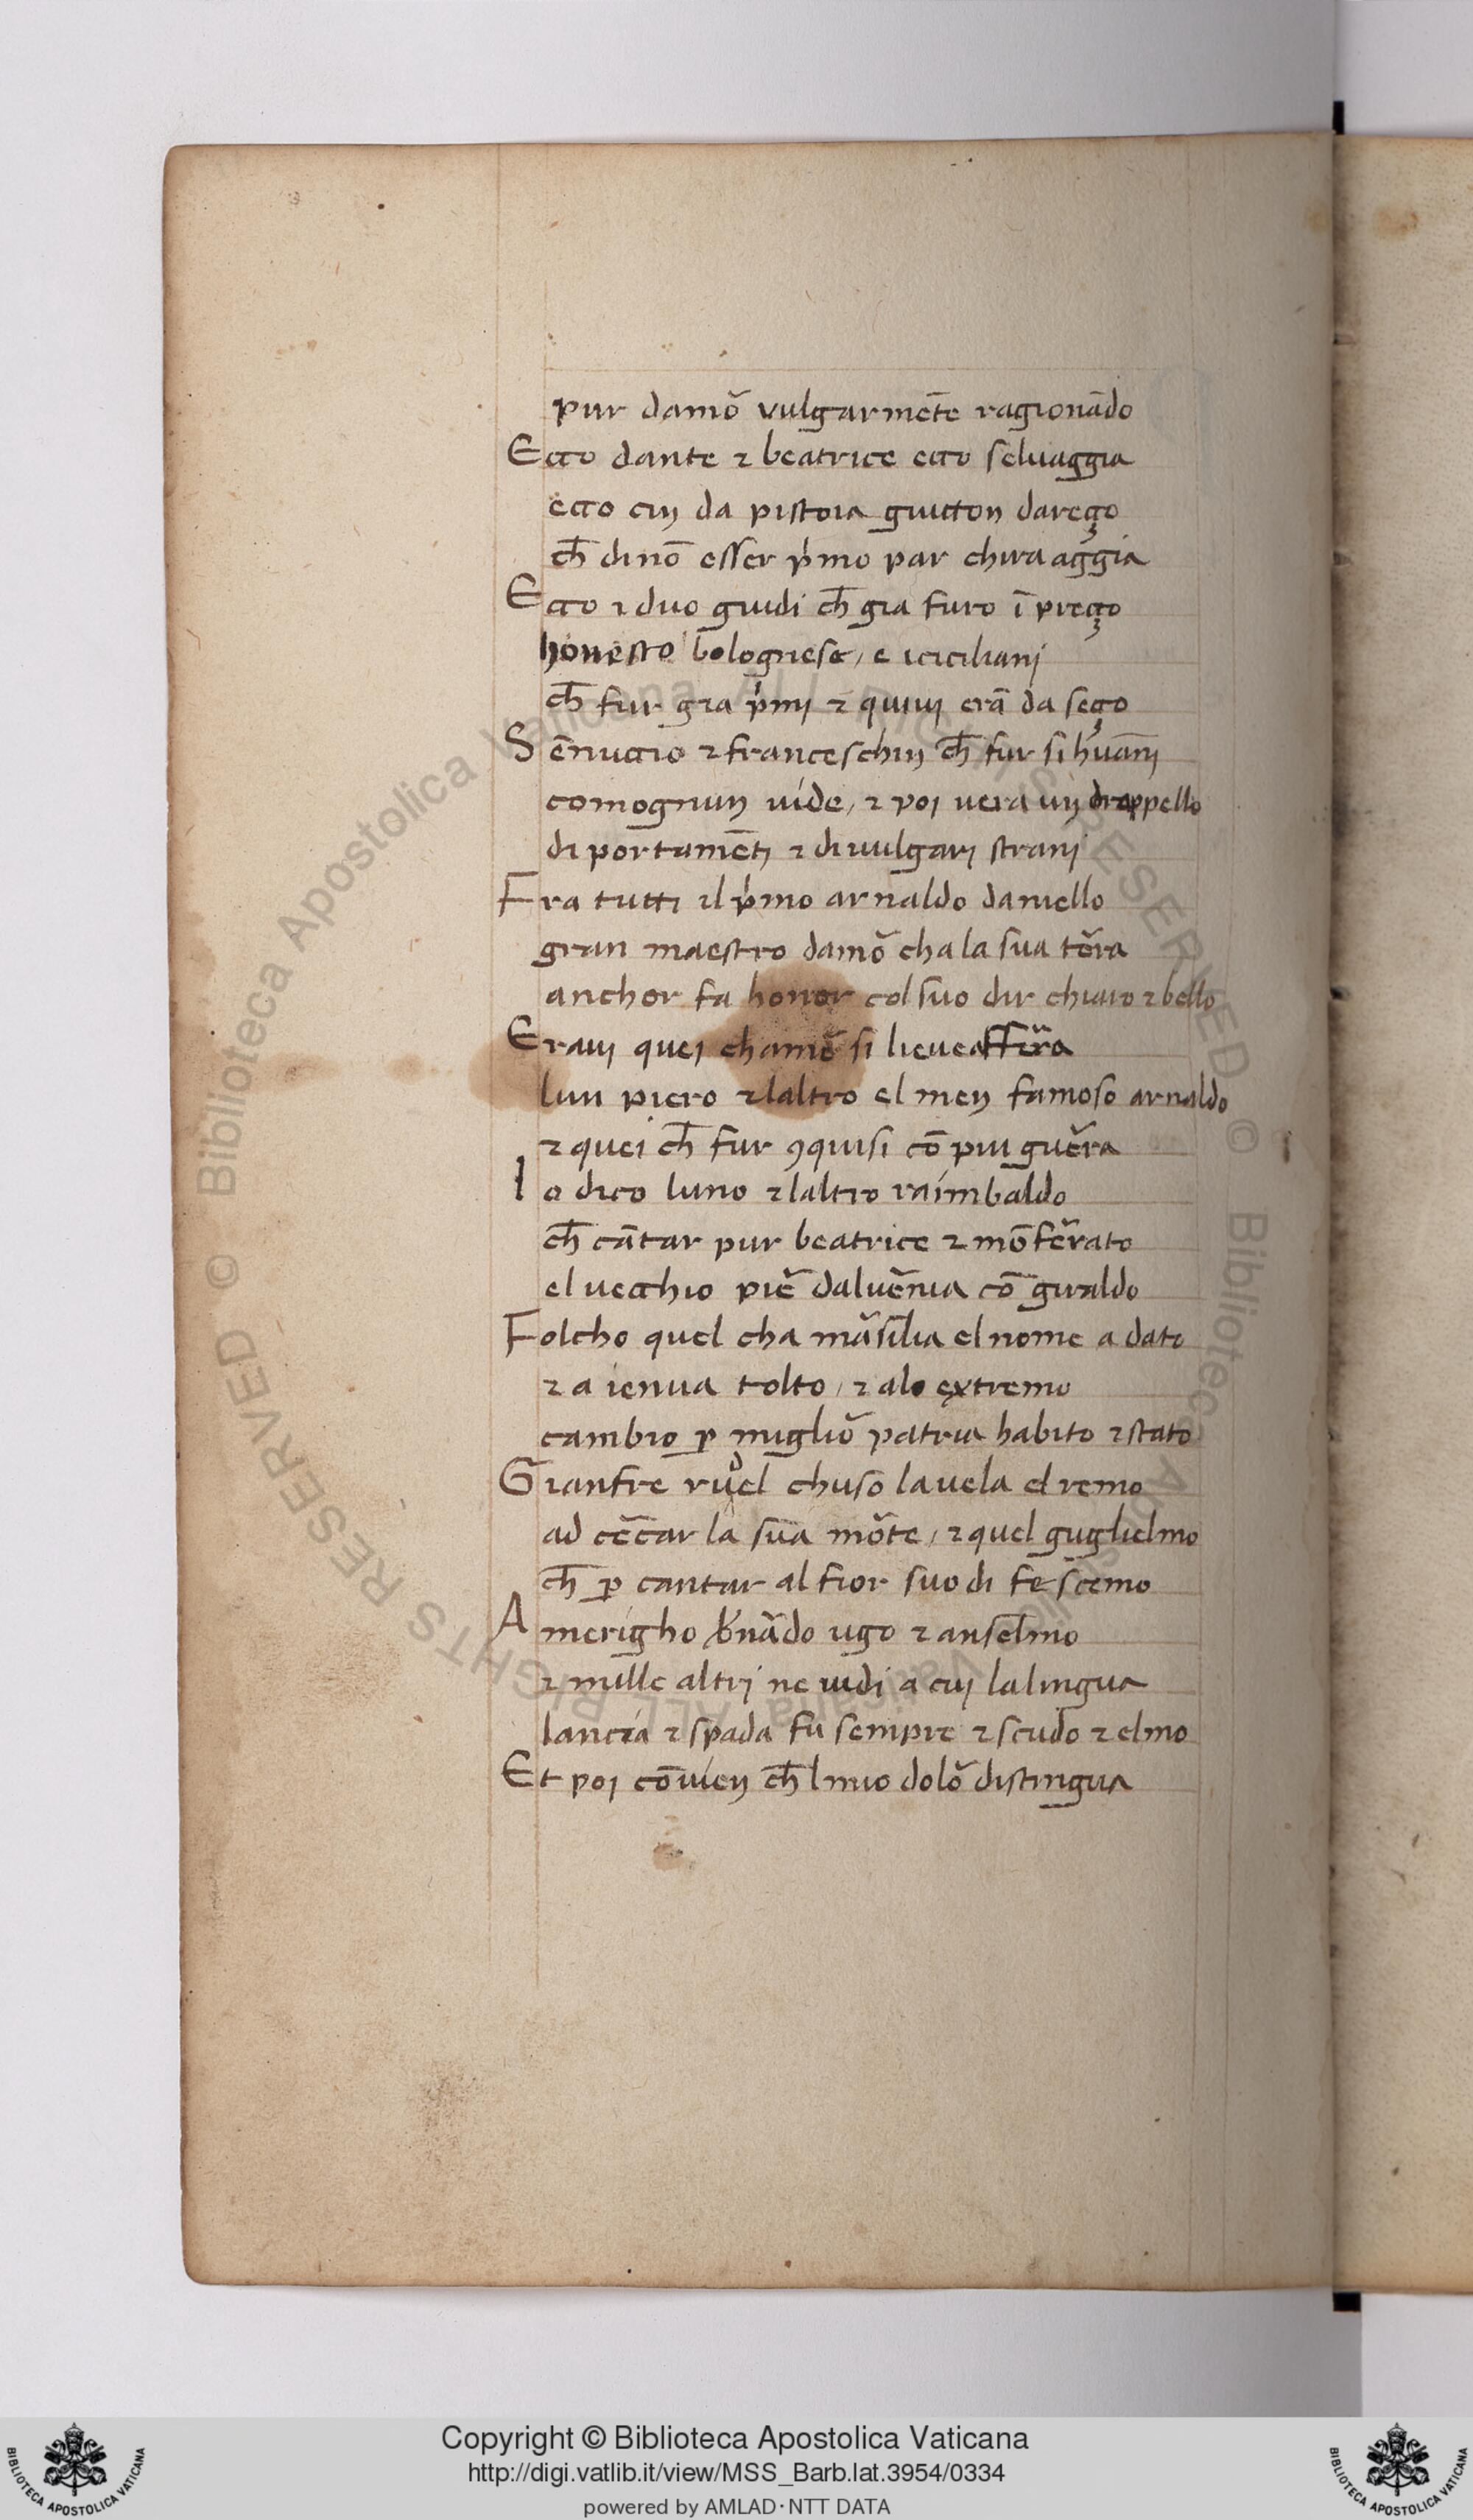 pur damõ vulgarmẽte ragionãdo
Ecco dante ⁊ beatrice ecco seluaggia
ecco cin da pistoia guitton dareço
ch̃ dinõ esser pͥmo par chira aggia
Ecco ⁊ duo guidi ch̃ gia furo ĩ preço
honesto bolognese, e iciciliani
ch̃ fur gia pͥmi ⁊ quiui erã da seço
Sẽnuccio ⁊ franceschin ch̃ fur si hũani
comognun uide, ⁊ poi uera un drappello
di portamẽti ⁊ di uulgari strani
Fra tutti il pͥmo arnaldo daniello
gran maestro damõ cha la sua tẽra
anchor fa honor col suo dir chiaro ⁊ bello
Eraui quei chamõ si lieue affẽra
lun piero ⁊ laltro el men famoso arnaldo
⁊ quei ch̃ fur ꝯquisi cõ piu guẽra
Io dico luno ⁊ laltro raimbaldo
ch̃ cãtar pur beatrice ⁊ mõfẽrato
el uecchio piẽ daluẽnia cõ giraldo
Folcho quel cha mãsilia el nome a dato
⁊ a ienua tolto, ⁊ alo extremo
cambio ꝑ miglio᷑ patria habito ⁊ stato
Gianfre rudel chuso la uela el remo
ad cẽcar la sua mõte, ⁊ quel guglielmo
ch̃ ꝑ cantar al fior suo di fe scemo
Amerigho b̃nãdo ugo ⁊ anselmo
⁊ mille altri ne uidi a cui la lingua
lancia ⁊ spada fu sempre ⁊ scudo ⁊ elmo
Et poi cõuien ch̃l mio dolõ distingua
Copyright © Biblioteca Apostolica Vaticana
http://digi.vatlib.it/view/MSS_Barb.lat.3954/0334
powered by AMLAD·NTT DATA